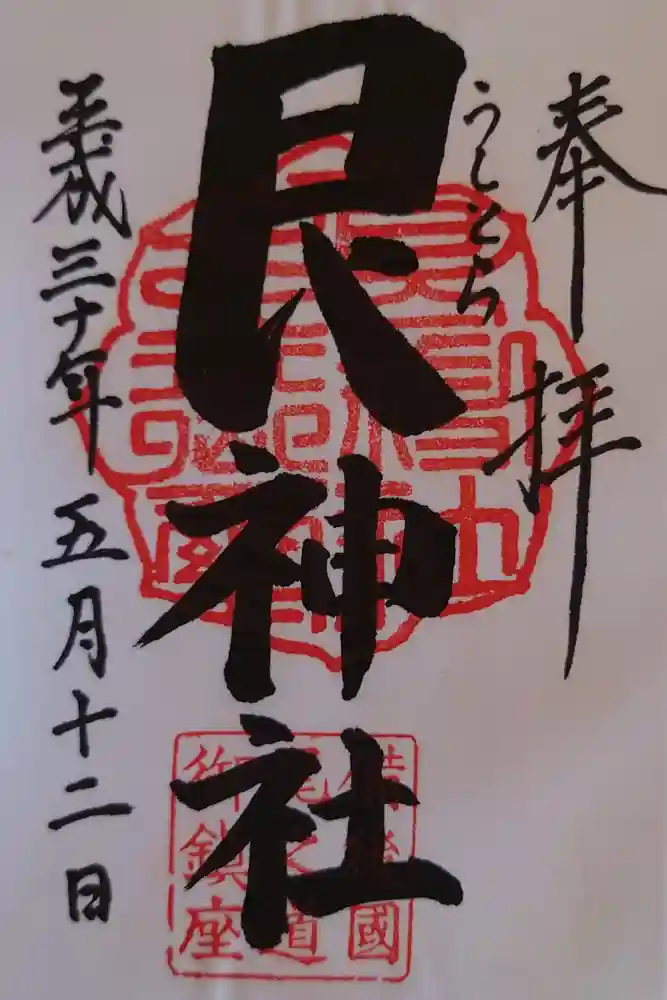 奉拝
うしとら
艮神社
平成三十年五月十二日
備後國
尾之道
御鎮座